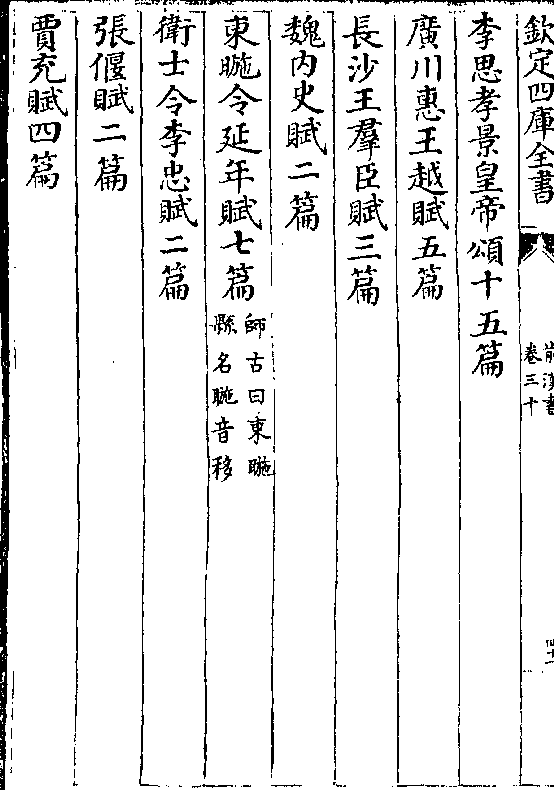 欽定四庫全書
前漢書
卷三十
李思孝景皇帝頌十五篇
廣川惠王越賦五篇
長沙王羣臣賦三篇
魏内史賦二篇
東暆令延年賦七篇師古曰東暆
縣名暆音移
衛士令李忠賦二篇
張偃賦二篇
賈充賦四篇